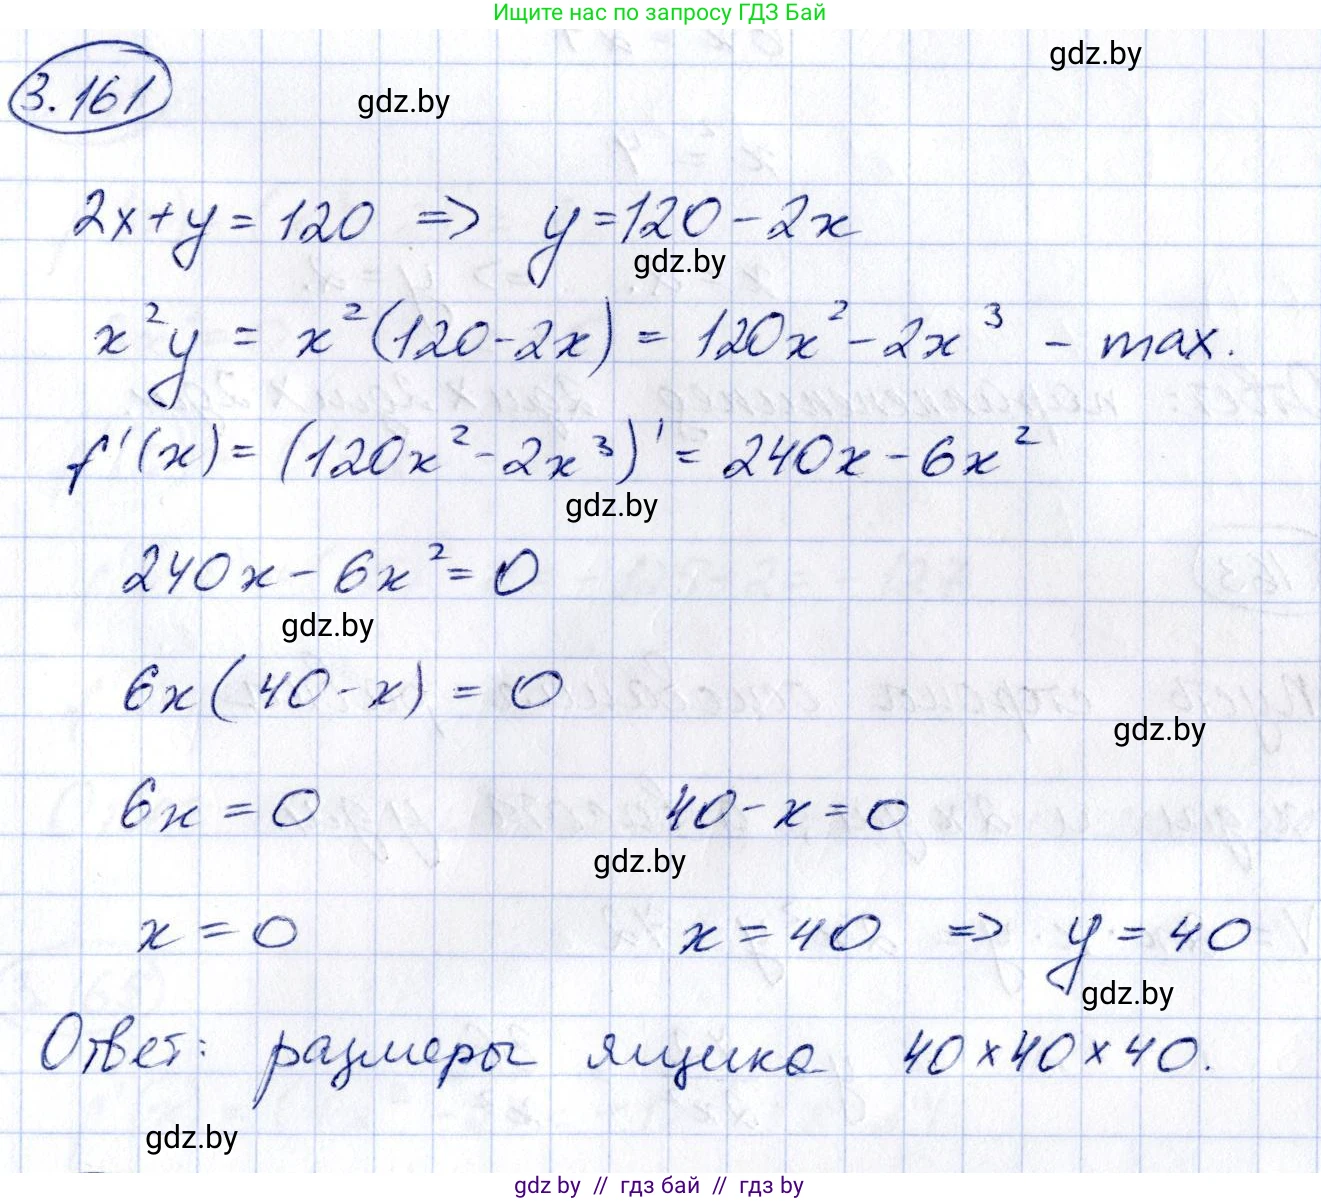 Ищите нас по запросу ГДЗ Бай
gdz.by
3.161
gdz.by
2x+y=120 => y=120-2x
gdz.by
x²y = x²(120-2x) = 120x²-2x³ - max.
f'(x)=(120x²-2x³)'=240x-6x²
gdz.by
240x-6x²=0
gdz.by
6x(40-x)=0
gdz.by
6x=0 40-x=0
gdz.by
x=0 x=40 => y=40
gdz.by
Ответ: размеры ящика 40×40×40.
gdz.by
gdz by // гдз бай // гдз by